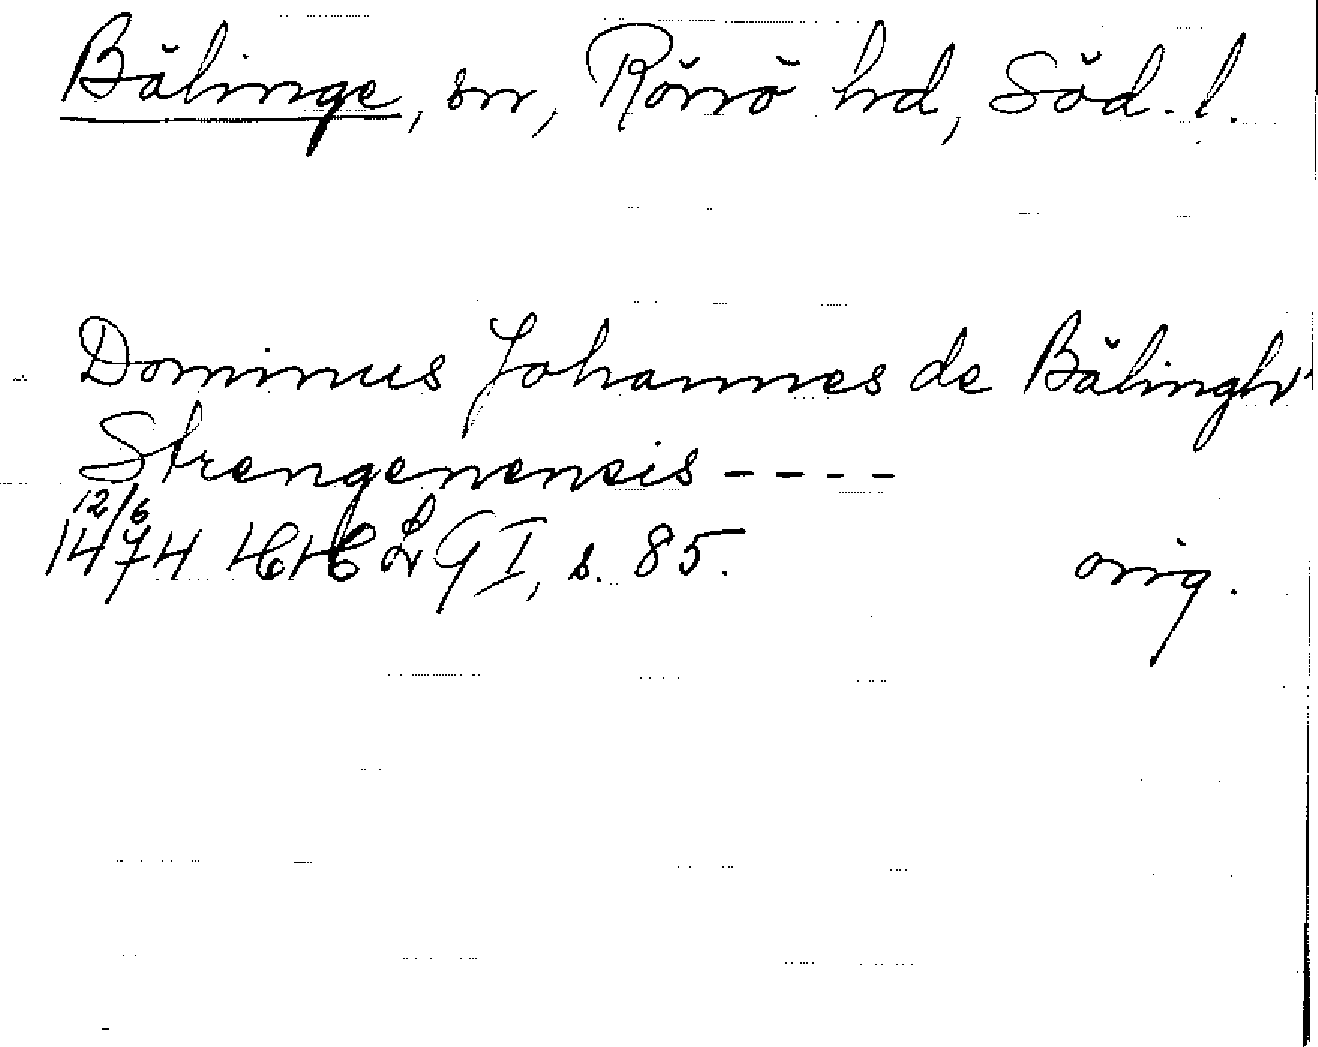 Bälinge, sn, Rönö hd, Söd. l.
Dominus Johannes de Bälingh
Strengenensis ----
12/6
1474 HH GI, s. 85. orig.